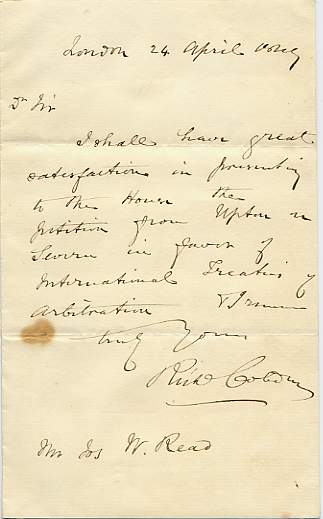 London 24 April 1849
Dr Sir
I shall have great
satisfaction in presenting
to the House the
petition from Upton on
Severn in favor of
International Treaties of
Arbitration & I remain
truly Yours
Richd Cobden
Mr Jos W. Read